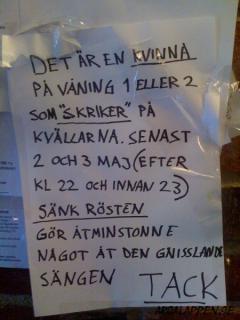 DET ÄR EN KVINNA
PÅ VÅNING 1 ELLER 2
SOM "SKRIKER" PÅ
KVÄLLARNA. SENAST
2 OCH 3 MAJ (EFTER
KL 22 OCH INNAN 23)
SÄNK RÖSTEN
GÖR ÅTMINSTONNE
NÅGOT ÅT DEN GNISSLANDE
SÄNGEN TACK
ARGALAPPEN.SE